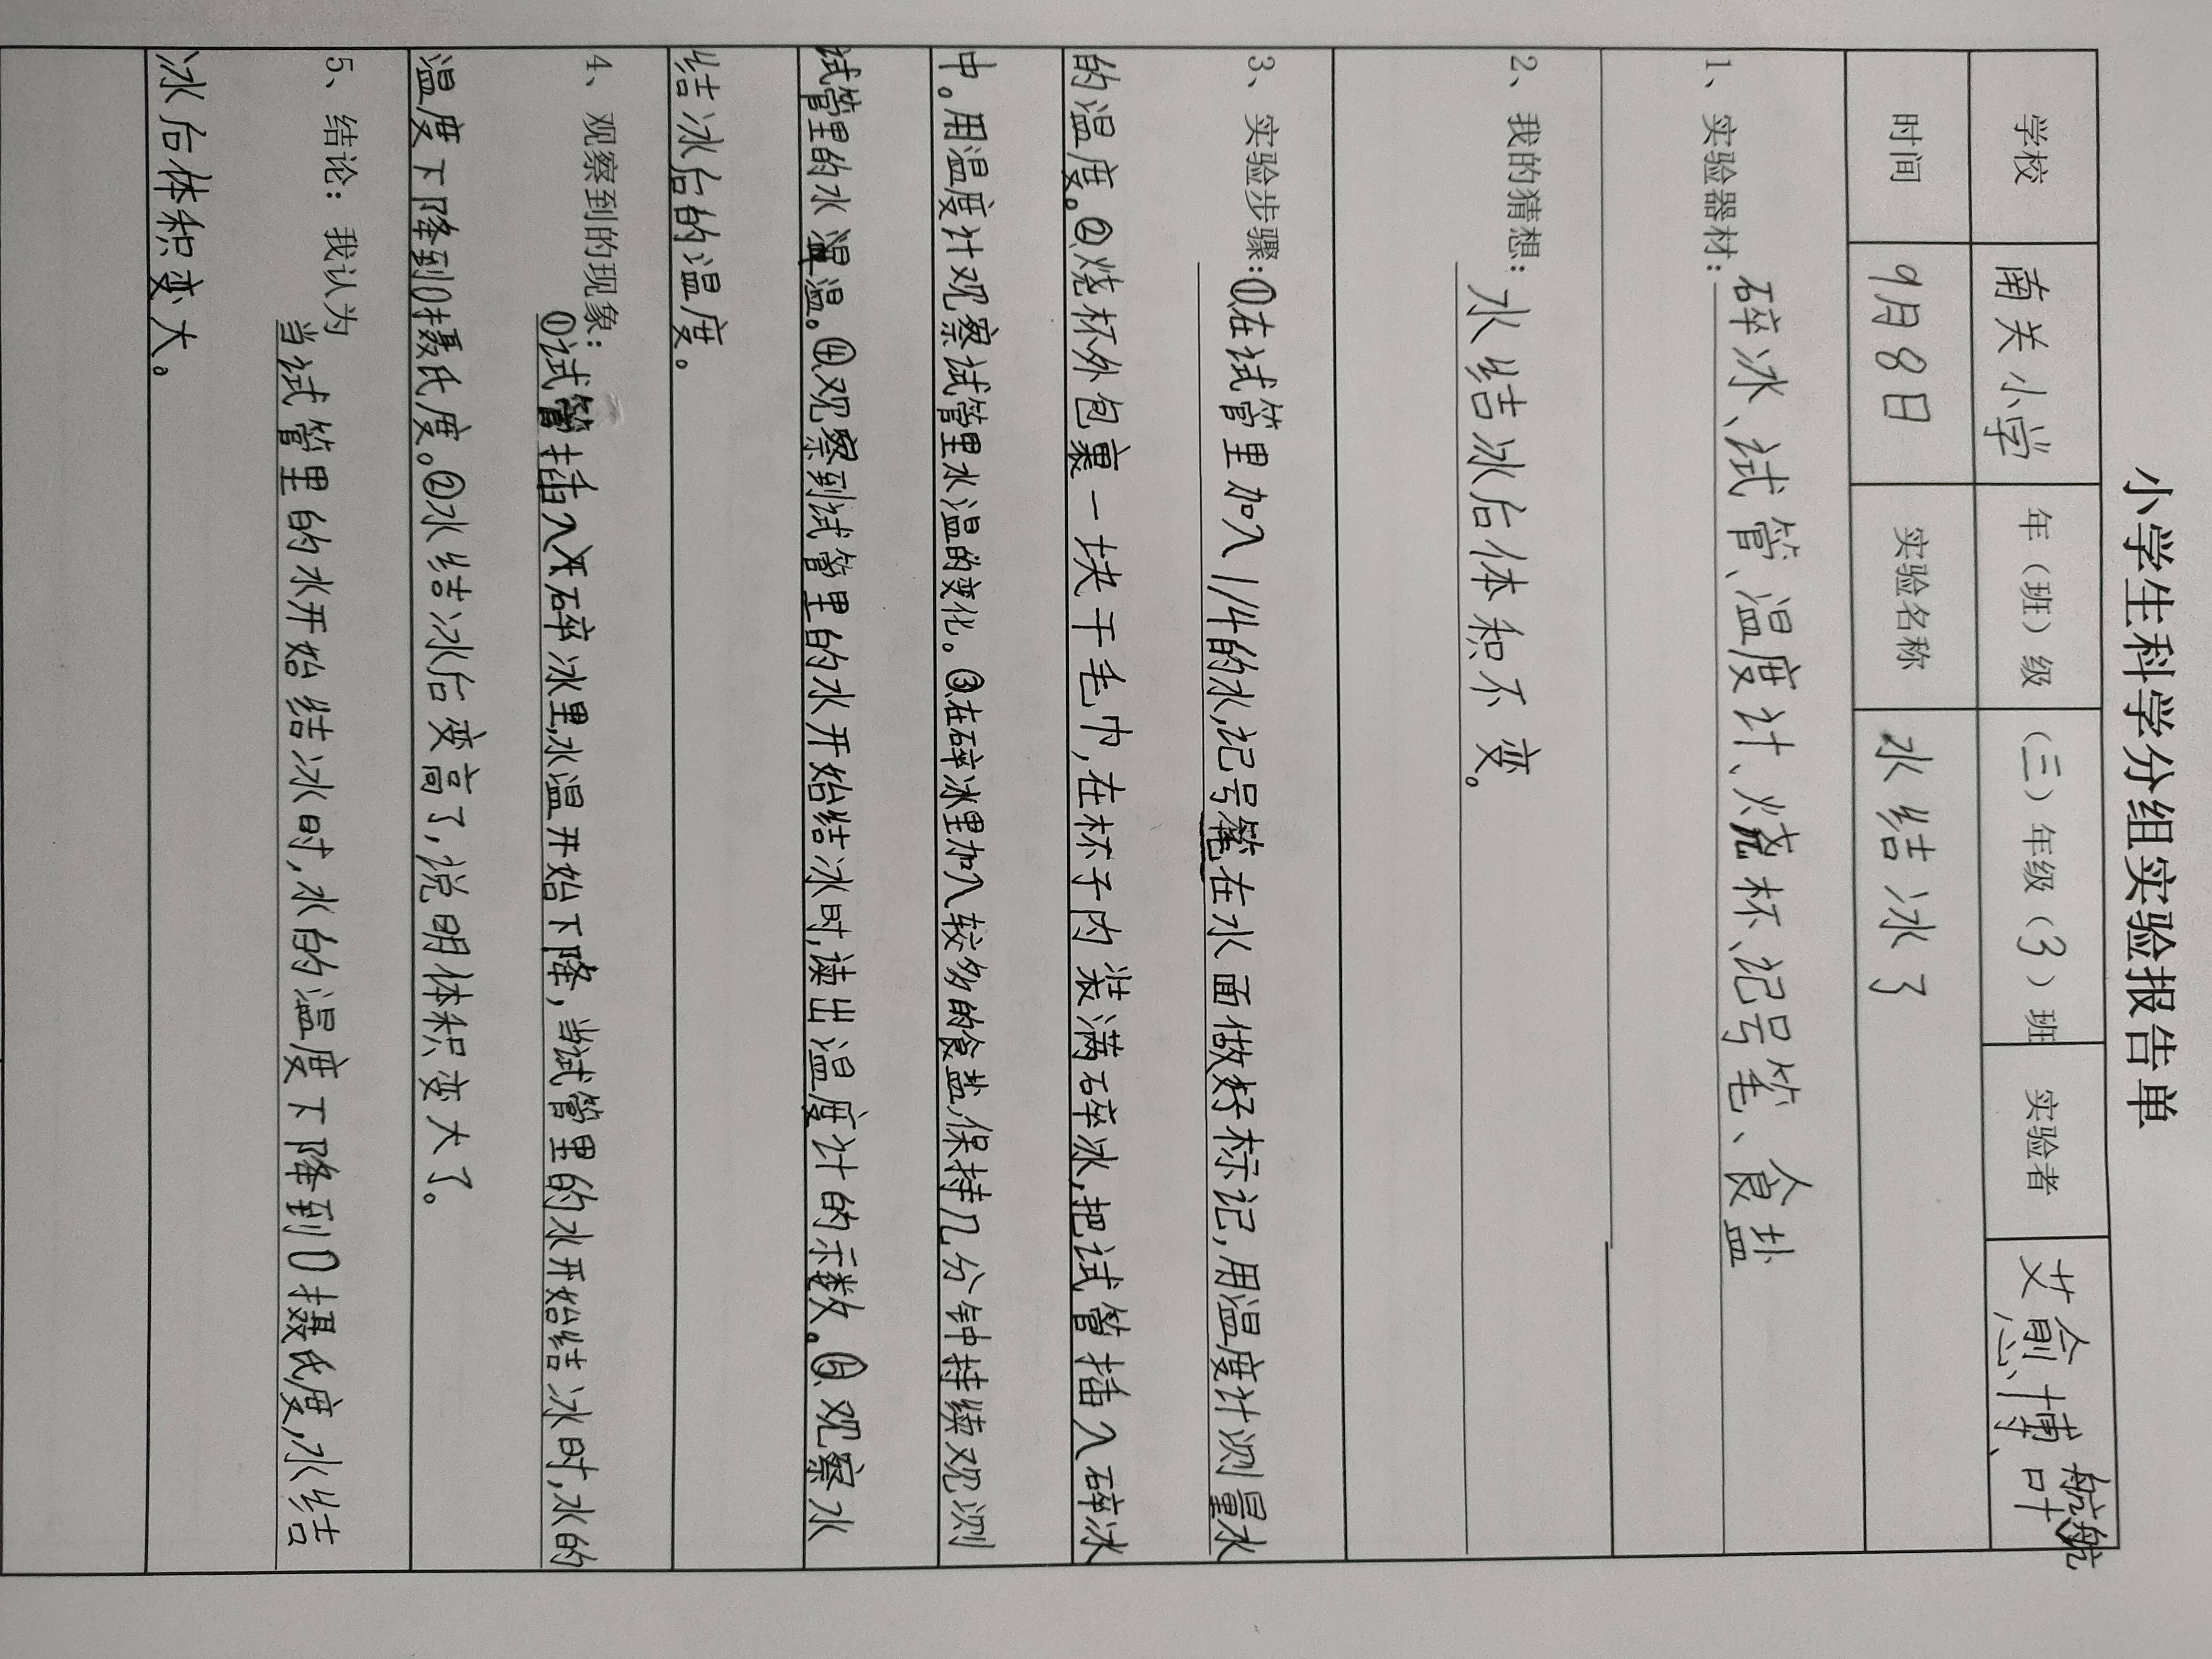 小学生科学分组实验报告单
学校 南关小学 年（班）级 （三）年级（3）班 实验者 艾愈博、叶航航
时间 9月8日 实验名称 水结冰了
1、实验器材：碎冰、试管、温度计、烧杯、记号笔、食盐
2、我的猜想：水结冰后体积不变。
3、实验步骤：①在试管里加入1/4的水,记号笔在水面做好标记,用温度计测量水
的温度。②烧杯外包裹一块干毛巾,在杯子内装满碎冰,把试管插入碎冰
中。用温度计观察试管里水温的变化。③在碎冰里加入较多的食盐,保持几分钟持续观测
试管里的水温。④观察到试管里的水开始结冰时,读出温度计的示数。⑤观察水
结冰后的温度。
4、观察到的现象：①试管插入碎冰里,水温开始下降,当试管里的水开始结冰时,水的
温度下降到0摄氏度。②水结冰后变高了,说明体积变大了。
5、结论：我认为当试管里的水开始结冰时,水的温度下降到0摄氏度,水结
冰后体积变大。